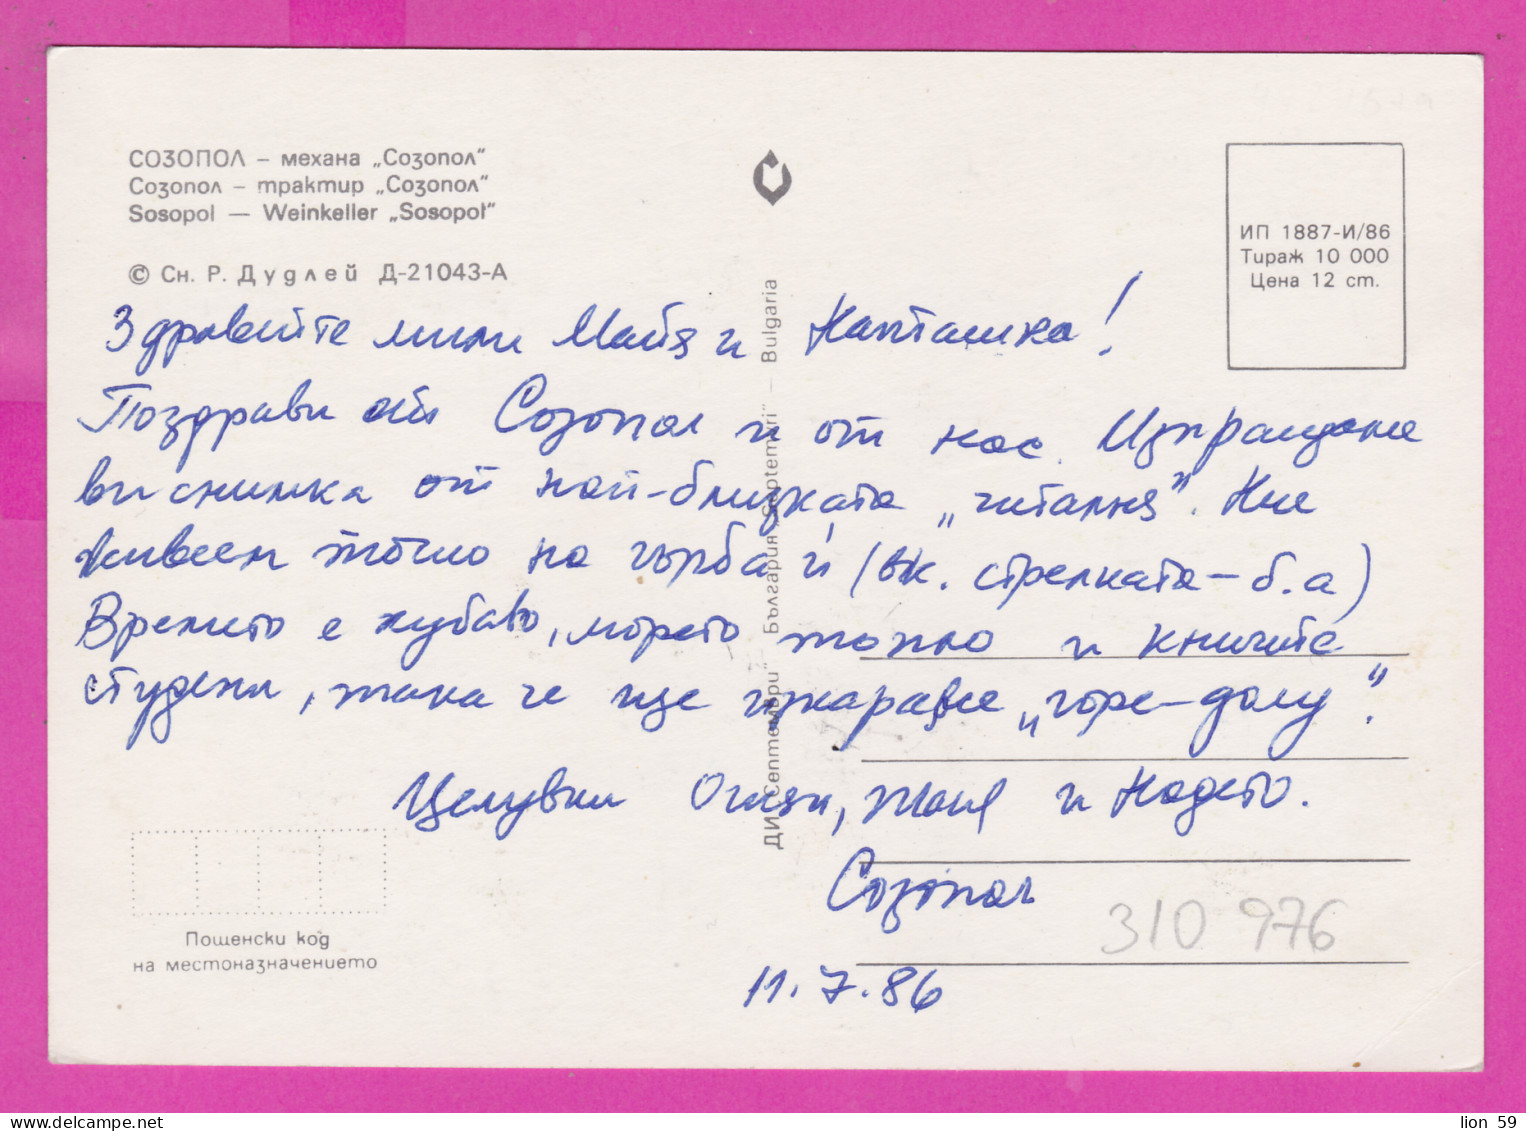 СОЗОПОЛ – механа „Созопол“
Созопол – трактир „Созопол“
Sosopol — Weinkeller „Sosopol“
© Сн. Р. Дудлей Д-21043-А
ИП 1887-И/86
Тираж 10 000
Цена 12 ст.
ДИ „Септември“ – България „Septemvri“ – Bulgaria
Здравейте мили Майя и !
Поздрави от Созопол и от нас. Изпращаме
ви снимка от най-близката „читалня“. Ние
живеем точно на гърба ѝ (вж. стрелката – б.а)
Времето е хубаво, морето топло и книгите
студени, така че ще изкараме „горе-долу“.
Целувки Огнян, Жана и Надето.
Созопол
11.7.86
310 976
Пощенски код
на местоназначението
lion 59